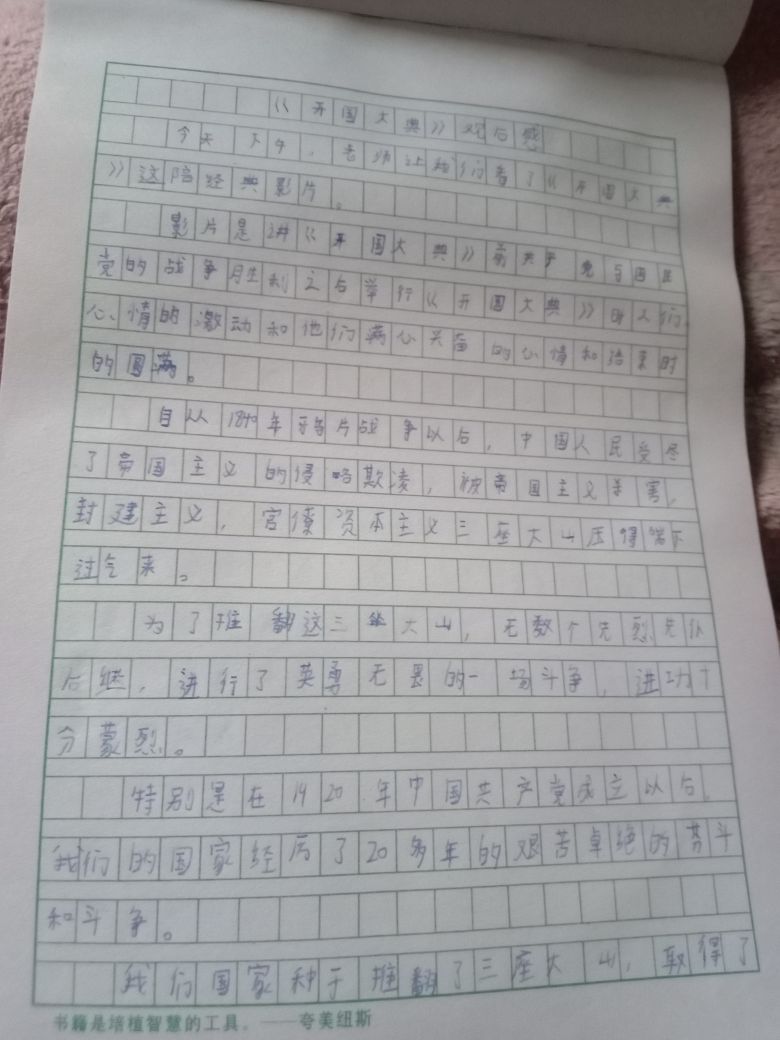 《开国大典》观后感
今天下午，老师让我们看了《开国大典
》这陪经典影片。
影片是讲《开国大典》前关于党与国民
党的战争胜利之后举行《开国大典》时人们
心情的激动和他们满心兴奋的心情和结束时
的圆满。
自从1840年鸦片战争以后，中国人民受尽
了帝国主义的侵略欺凌，被帝国主义羊害，
封建主义，官僚资本主义三座大山压得喘不
过气来。
为了推翻这三坐大山，无数个先烈先仆
后继，进行了英勇无畏的一场斗争，进攻十
分蒙烈。
特别是在1920年中国共产党成立以后，
我们的国家经历了20多年的艰苦卓绝的势斗
和斗争。
我们国家种于推翻了三座大山，取得了
书籍是培植智慧的工具。——夸美纽斯